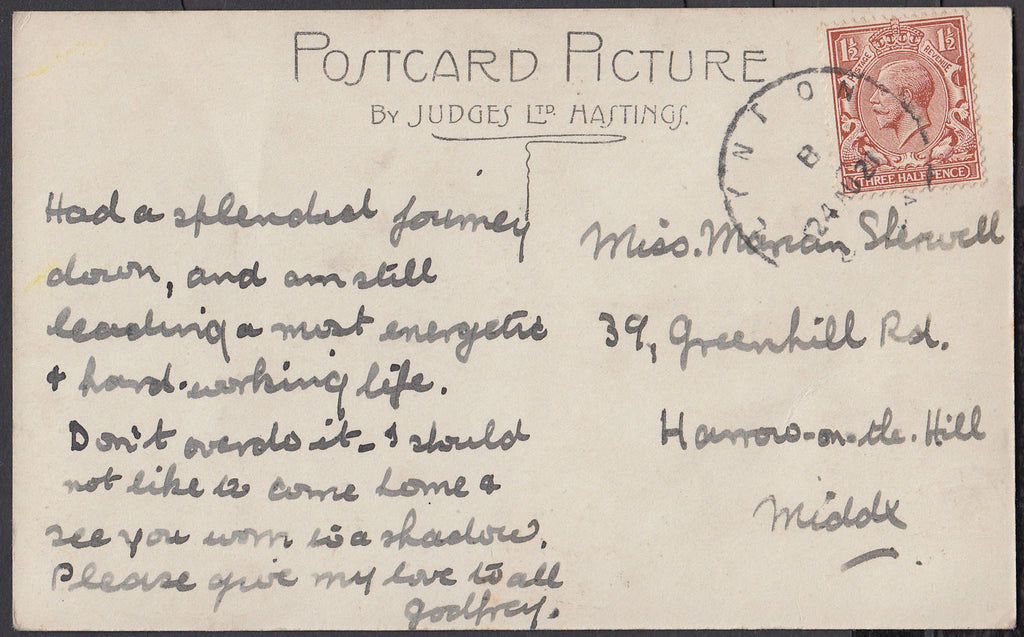 POSTCARD PICTURE
BY JUDGES LTD. HASTINGS.
1½ 1½
POSTAGE REVENUE
THREE HALFPENCE
YNTON
B
24 AU 21
Had a splendid journey
down, and am still
leading a most energetic
& hard-working life.
Don't overdo it - I should
not like to come home &
see you worn to a shadow.
Please give my love to all
Godfrey.
Miss. Marian Sherwell
39, Greenhill Rd.
Harrow-on-the-Hill
Middx